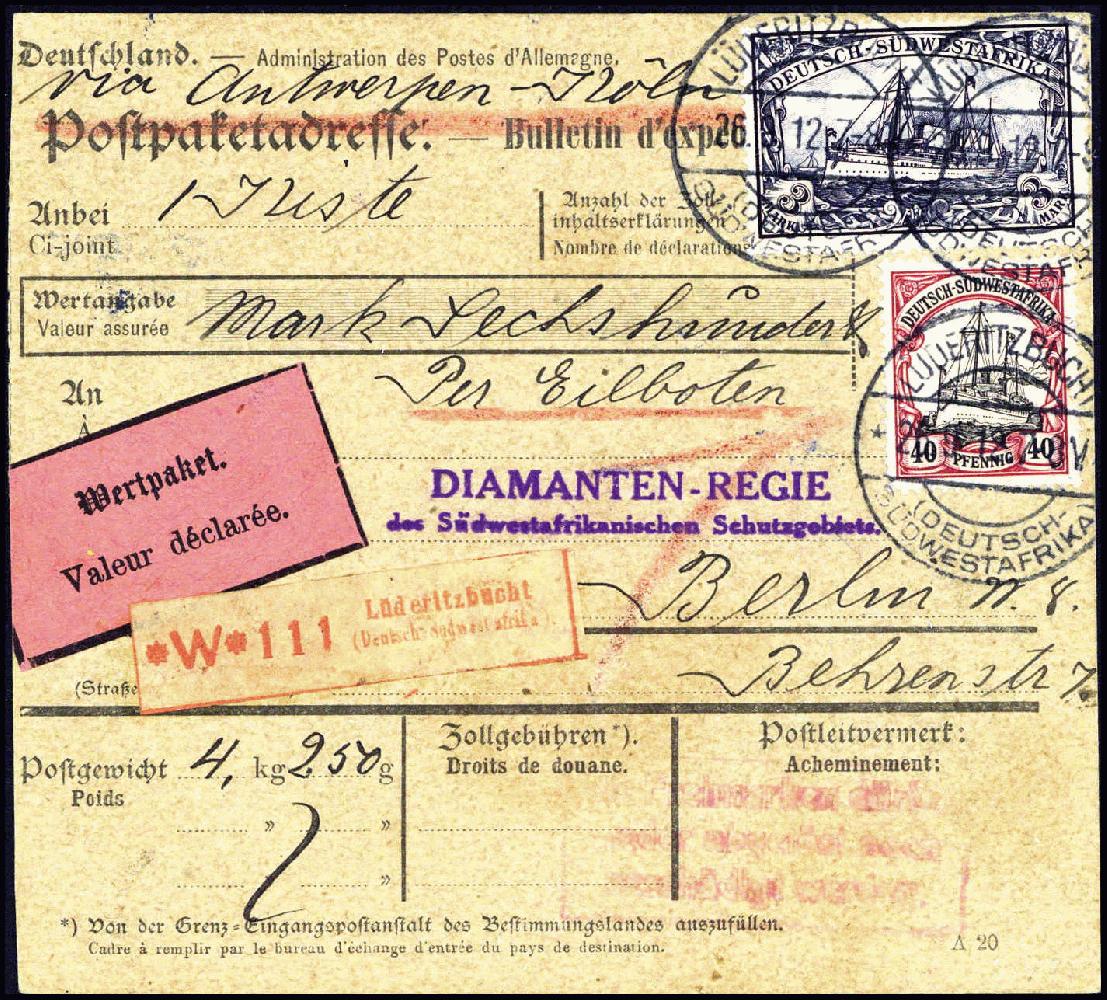 Deutschland. — Administration des Postes d'Allemagne.
via Antwerpen-Köln
Postpaketadresse. — Bulletin d'exp
Anbei 1 Kiste
Ci-joint
Anzahl der Zoll-
inhaltserklärungen
Nombre de déclarations
Wertangabe Mark Sechshundert
Valeur assurée
An Per Eilboten
À
DIAMANTEN-REGIE
des Südwestafrikanischen Schutzgebiets.
Berlin W. 8.
Behrenstr
(Straße
Wertpaket.
Valeur déclarée.
*W*111 Lüderitzbucht
(Deutsch-Südwestafrika).
Postgewicht 4, kg 250 g
Poids
" "
"
Zollgebühren*).
Droits de douane.
Postleitvermerk:
Acheminement:
*) Von der Grenz-Eingangspostanstalt des Bestimmungslandes auszufüllen.
Cadre à remplir par le bureau d'échange d'entrée du pays de destination.
A 20
DEUTSCH-SÜDWESTAFRIKA
3 MARK 3 MARK
DEUTSCH-SÜDWESTAFRIKA
40 PFENNIG 40
LÜDERITZBUCHT
26. 12. 7-8
(DEUTSCH-
SÜDWESTAFRIKA)
LÜDERITZBUCHT
(DEUTSCH-
SÜDWESTAFRIKA)
LÜDERITZBUCHT
8 V
(DEUTSCH-
SÜDWESTAFRIKA)